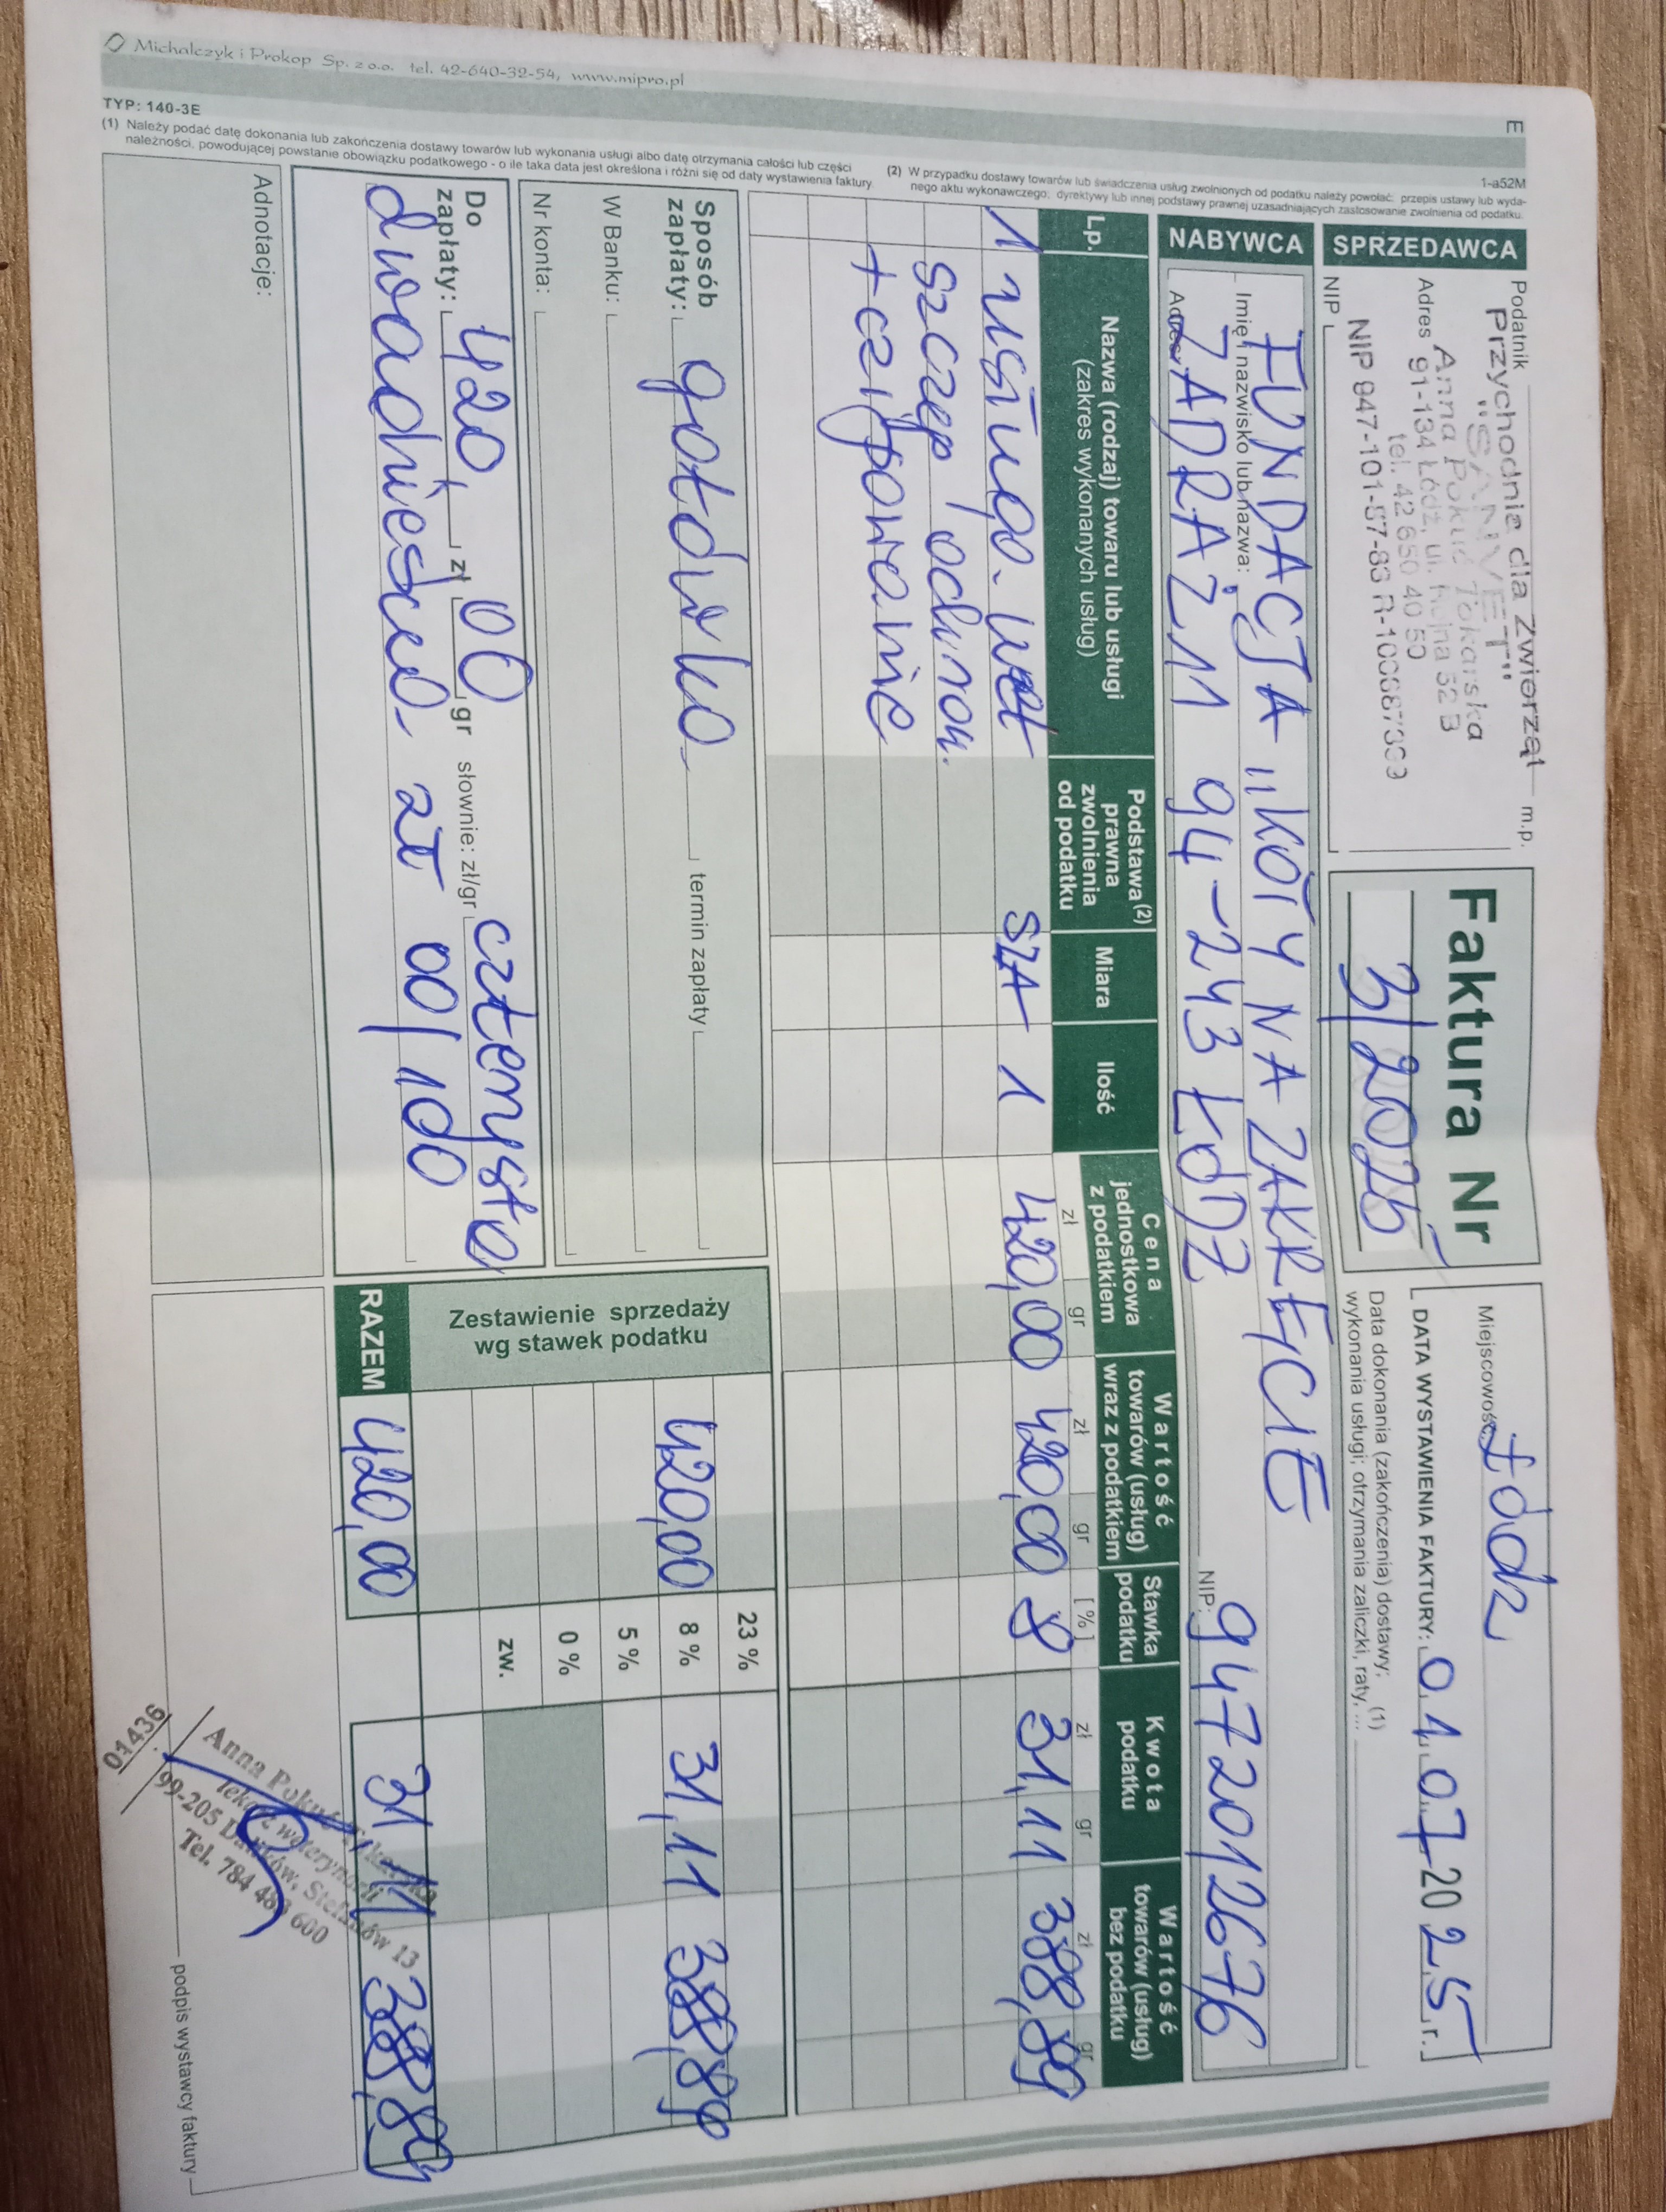 Podatnik
Przychodnia dla Zwierząt m.p.
"SANVET"
Anna Pokuć Tokarska
Adres 91-134 Łódź, ul. Rojna 52 B
tel. 42 650 40 50
NIP 947-101-57-83
NIP
SPRZEDAWCA
Faktura Nr
3/2025
Miejscowość Łódź
DATA WYSTAWIENIA FAKTURY: 01.07.2025 r.
Data dokonania (zakończenia) dostawy; (1)
wykonania usługi; otrzymania zaliczki, raty, ...
NABYWCA
Imię i nazwisko lub nazwa:
FUNDACJA "KOTY NA ZAKRĘCIE
Adres ZADRAŻ 11 94-243 ŁÓDŹ
NIP: 9472012676
Lp.
Nazwa (rodzaj) towaru lub usługi
(zakres wykonanych usług)
Podstawa (2)
prawna
zwolnienia
od podatku
Miara
Ilość
Cena
jednostkowa
z podatkiem
zł gr
Wartość
towarów (usług)
wraz z podatkiem
zł gr
Stawka
podatku
[%]
Kwota
podatku
zł gr
Wartość
towarów (usług)
bez podatku
zł gr
1 usługa wet 1 420,00 420,00 8 31,11 388,89
szczep ochron.
+ czipowanie
Sposób
zapłaty: gotówka termin zapłaty
W Banku:
Nr konta:
Zestawienie sprzedaży
wg stawek podatku
23 %
420,00 8 % 31,11 388,89
5 %
0 %
zw.
RAZEM 420,00 31,11 388,89
Do
zapłaty: 420, zł 00 gr słownie: zł/gr czterysta
dwadzieścia zł 00/100
Adnotacje:
Anna Pokuć Tokarska
lekarz weterynarii
99-205 Dalików, Stefanów 13
Tel. 784 483 600
01436
podpis wystawcy faktury
TYP: 140-3E
E
1-a52M
(1) Należy podać datę dokonania lub zakończenia dostawy towarów lub wykonania usługi albo datę otrzymania całości lub części
należności, powodującej powstanie obowiązku podatkowego - o ile taka data jest określona i różni się od daty wystawienia faktury.
(2) W przypadku dostawy towarów lub świadczenia usług zwolnionych od podatku należy powołać: przepis ustawy lub wyda-
nego aktu wykonawczego, dyrektywy lub innej podstawy prawnej uzasadniających zastosowanie zwolnienia od podatku.
Michalczyk i Prokop Sp. z o.o. tel. 42-640-32-54, www.mipro.pl